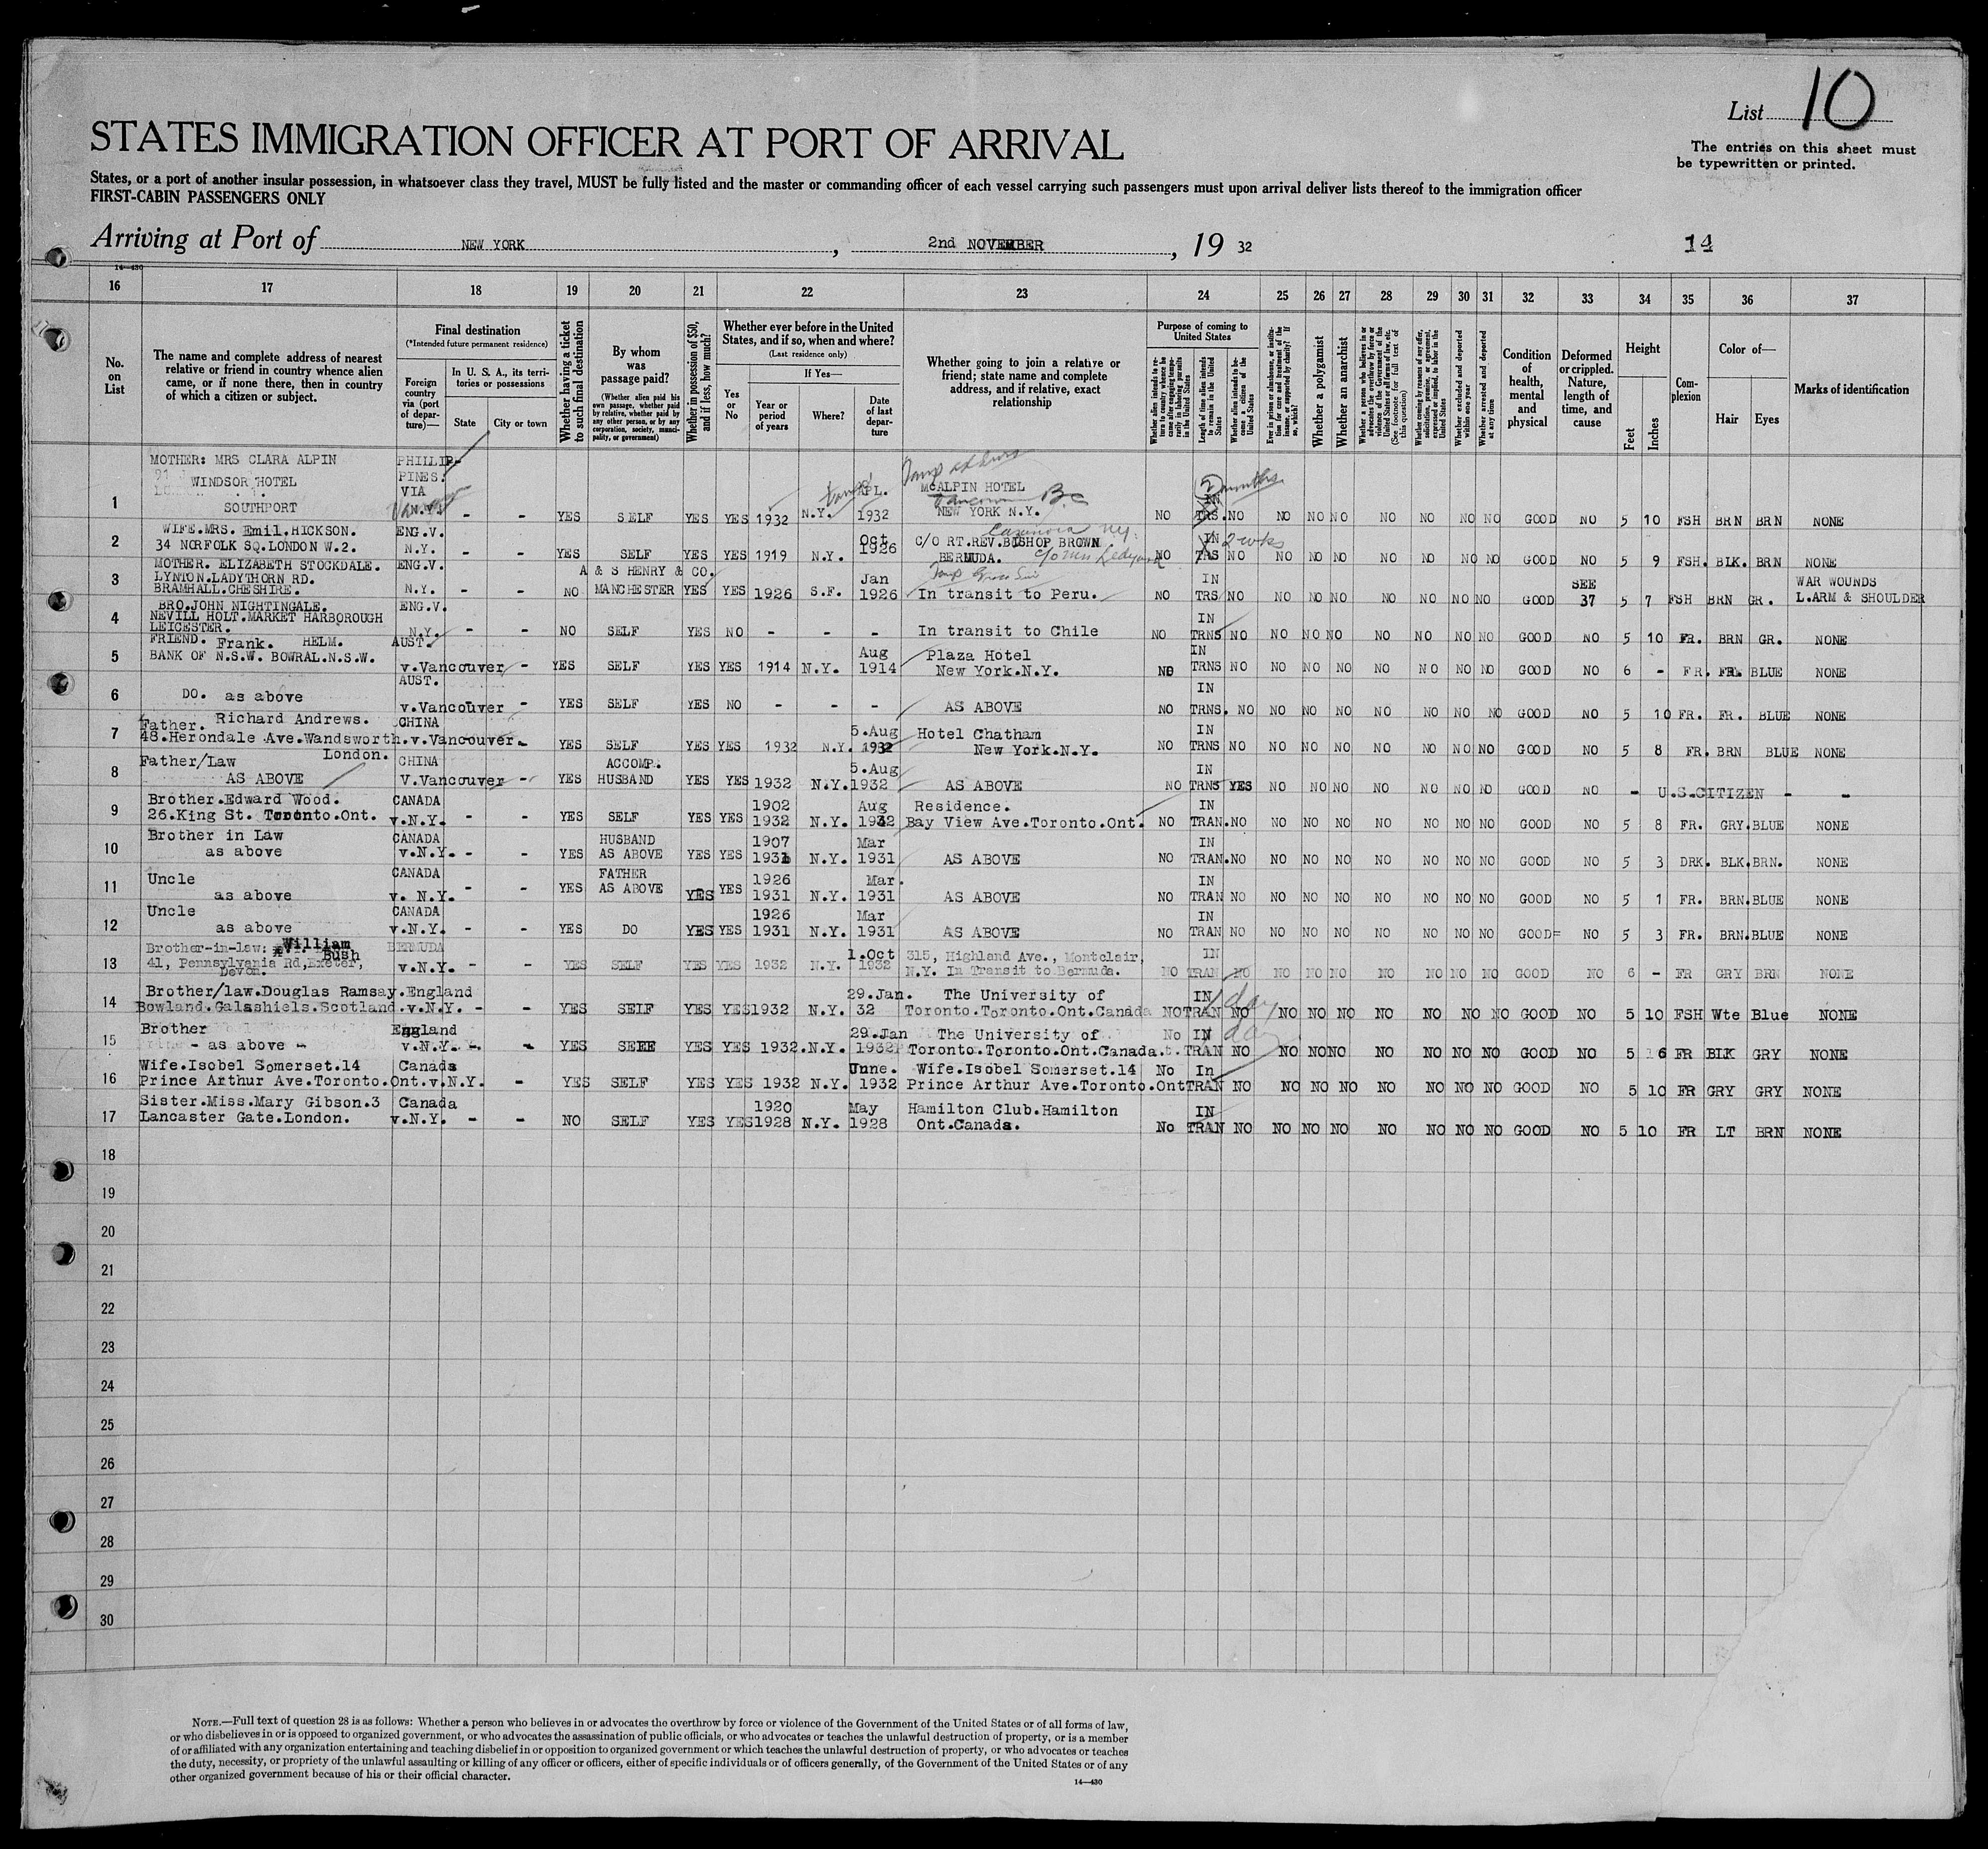 List 10
STATES IMMIGRATION OFFICER AT PORT OF ARRIVAL
The entries on this sheet must
be typewritten or printed.
States, or a port of another insular possession, in whatsoever class they travel, MUST be fully listed and the master or commanding officer of each vessel carrying such passengers must upon arrival deliver lists thereof to the immigration officer
FIRST-CABIN PASSENGERS ONLY
Arriving at Port of NEW YORK, 2nd NOVEMBER, 19 32
14
14—430
16 17 18 19 20 21 22 23 24 25 26 27 28 29 30 31 32 33 34 35 36 37
No. on List
The name and complete address of nearest relative or friend in country whence alien came, or if none there, then in country of which a citizen or subject.
Final destination
(*Intended future permanent residence)
Foreign country via (port of departure)—
In U. S. A., its territories or possessions
State
City or town
Whether having a ticket to such final destination
By whom was passage paid?
(Whether alien paid his own passage, whether paid by relative, whether paid by any other person, or by any corporation, society, municipality, or government)
Whether in possession of $50, and if less, how much?
Whether ever before in the United States, and if so, when and where?
(Last residence only)
Yes or No
If Yes—
Year or period of years
Where?
Date of last departure
Whether going to join a relative or friend; state name and complete address, and if relative, exact relationship
Purpose of coming to United States
Whether alien intends to return to country whence he came after engaging temporarily in laboring pursuits in the United States
Length of time alien intends to remain in the United States
Whether alien intends to become a citizen of the United States
Ever in prison or almshouse, or institution for care and treatment of the insane, or supported by charity? If so, which?
Whether a polygamist
Whether an anarchist
Whether a person who believes in or advocates the overthrow by force or violence of the Government of the United States or all forms of law, etc. (See footnote for full text of this question)
Whether coming by reason of any offer, solicitation, promise, or agreement, expressed or implied, to labor in the United States
Whether excluded and deported within one year
Whether arrested and deported at any time
Condition of health, mental and physical
Deformed or crippled. Nature, length of time, and cause
Height
Feet
Inches
Complexion
Color of—
Hair
Eyes
Marks of identification
MOTHER: MRS CLARA ALPIN PHILLIP-
WINDSOR HOTEL PINES.
VIA APL. McALPIN HOTEL 2 months
1 SOUTHPORT N.Y. - - YES SELF YES YES 1932 N.Y. 1932 NEW YORK N.Y. B.C. NO IN TRS. NO NO NO NO NO NO NO NO GOOD NO 5 10 FSH BRN BRN NONE
WIFE.MRS. Emil.HICKSON. ENG.V. Oct. C/O RT.REV.BISHOP BROWN IN 2 wks
2 34 NORFOLK SQ.LONDON W.2. N.Y. - - YES SELF YES YES 1919 N.Y. 1926 BERMUDA. NO TRS NO NO NO NO NO NO NO NO GOOD NO 5 9 FSH. BLK. BRN NONE
MOTHER. ELIZABETH STOCKDALE. ENG.V. A & S HENRY & CO.
3 LYNTON.LADYTHORN RD. Jan IN SEE WAR WOUNDS
BRAMHALL.CHESHIRE. N.Y. - - NO MANCHESTER YES YES 1926 S.F. 1926 In transit to Peru. NO TRS NO NO NO NO NO NO NO NO GOOD 37 5 7 FSH BRN GR. L.ARM & SHOULDER
BRO.JOHN NIGHTINGALE. ENG.V.
4 NEVILL HOLT.MARKET HARBOROUGH IN
LEICESTER. N.Y. - - NO SELF YES NO - - - In transit to Chile NO TRNS NO NO NO NO NO NO NO NO GOOD NO 5 10 FR. BRN GR. NONE
FRIEND. Frank. HELM. AUST. Aug Plaza Hotel IN
5 BANK OF N.S.W. BOWRAL.N.S.W. v.Vancouver - YES SELF YES YES 1914 N.Y. 1914 New York.N.Y. NO TRNS NO NO NO NO NO NO NO NO GOOD NO 6 - FR. FR. BLUE NONE
AUST. IN
6 DO. as above v.Vancouver - - YES SELF YES NO - - - AS ABOVE NO TRNS. NO NO NO NO NO NO NO NO GOOD NO 5 10 FR. FR. BLUE NONE
Father. Richard Andrews. CHINA 5.Aug Hotel Chatham IN
7 48.Herondale Ave.Wandsworth.v.Vancouver. - YES SELF YES YES 1932 N.Y. 1932 New York.N.Y. NO TRNS NO NO NO NO NO NO NO NO GOOD NO 5 8 FR. BRN BLUE NONE
London.
Father/Law CHINA ACCOMP. 5.Aug IN
8 AS ABOVE v.Vancouver - YES HUSBAND YES YES 1932 N.Y. 1932 AS ABOVE NO TRNS YES NO NO NO NO NO NO NO GOOD NO - U.S.CITIZEN - -
Brother.Edward Wood. CANADA 1902 Aug Residence. IN
9 26.King St. Toronto.Ont. v.N.Y. - - YES SELF YES YES 1932 N.Y. 1932 Bay View Ave.Toronto.Ont. NO TRAN. NO NO NO NO NO NO NO NO GOOD NO 5 8 FR. GRY. BLUE NONE
Brother in Law CANADA HUSBAND 1907 Mar IN
10 as above v.N.Y. - - YES AS ABOVE YES YES 1931 N.Y. 1931 AS ABOVE NO TRAN. NO NO NO NO NO NO NO NO GOOD NO 5 3 DRK. BLK. BRN. NONE
Uncle CANADA FATHER 1926 Mar. IN
11 as above v. N.Y. - - YES AS ABOVE YES YES 1931 N.Y. 1931 AS ABOVE NO TRAN NO NO NO NO NO NO NO NO GOOD NO 5 1 FR. BRN. BLUE NONE
Uncle CANADA 1926 Mar IN
12 as above v.N.Y. - - YES DO YES YES 1931 N.Y. 1931 AS ABOVE NO TRAN NO NO NO NO NO NO NO NO GOOD= NO 5 3 FR. BRN. BLUE NONE
Brother-in-law: William Bush BERMUDA 1.Oct 315, Highland Ave., Montclair, IN
13 41, Pennsylvania Rd,Exeter, Devon. v.N.Y. - - YES SELF YES YES 1932 N.Y. 1932 N.Y. In Transit to Bermuda. NO TRAN NO NO NO NO NO NO NO NO GOOD NO 6 - FR GRY BRN NONE
Brother/law.Douglas Ramsay.England 29.Jan. The University of IN 1 day
14 Bowland.Galashiels.Scotland.v.N.Y. - - YES SELF YES YES 1932 N.Y. 32 Toronto.Toronto.Ont.Canada NO TRAN NO NO NO NO NO NO NO NO GOOD NO 5 10 FSH Wte Blue NONE
Brother England 29.Jan The University of No IN 1 day
15 - as above - v.N.Y. - - YES SELF YES YES 1932. N.Y. 1932 Toronto.Toronto.Ont.Canada. TRAN NO NO NO NO NO NO NO NO GOOD NO 5 6 FR BLK GRY NONE
Wife.Isobel Somerset.14 Canada June. Wife.Isobel Somerset.14 No In
16 Prince Arthur Ave.Toronto.Ont.v.N.Y. - YES SELF YES YES 1932 N.Y. 1932 Prince Arthur Ave.Toronto.Ont TRAN NO NO NO NO NO NO NO NO GOOD NO 5 10 FR GRY GRY NONE
Sister.Miss.Mary Gibson.3 Canada 1920 May Hamilton Club.Hamilton IN
17 Lancaster Gate.London. v.N.Y. - - NO SELF YES YES 1928 N.Y. 1928 Ont.Canada. No TRAN NO NO NO NO NO NO NO NO GOOD NO 5 10 FR LT BRN NONE
18
19
20
21
22
23
24
25
26
27
28
29
30
NOTE.—Full text of question 28 is as follows: Whether a person who believes in or advocates the overthrow by force or violence of the Government of the United States or of all forms of law,
or who disbelieves in or is opposed to organized government, or who advocates the assassination of public officials, or who advocates or teaches the unlawful destruction of property, or is a member
of or affiliated with any organization entertaining and teaching disbelief in or opposition to organized government or which teaches the unlawful destruction of property, or who advocates or teaches
the duty, necessity, or propriety of the unlawful assaulting or killing of any officer or officers, either of specific individuals or of officers generally, of the Government of the United States or of any
other organized government because of his or their official character.
14—430